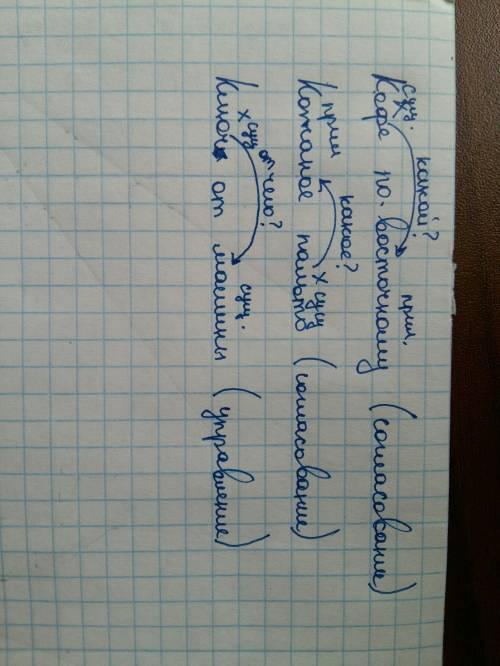 сущ. какой? прил.
Кофе по-восточному (согласование)
прил какое? х сущ
Кожаное пальто (согласование)
х сущ от чего? сущ.
Ключ от машины (управление)